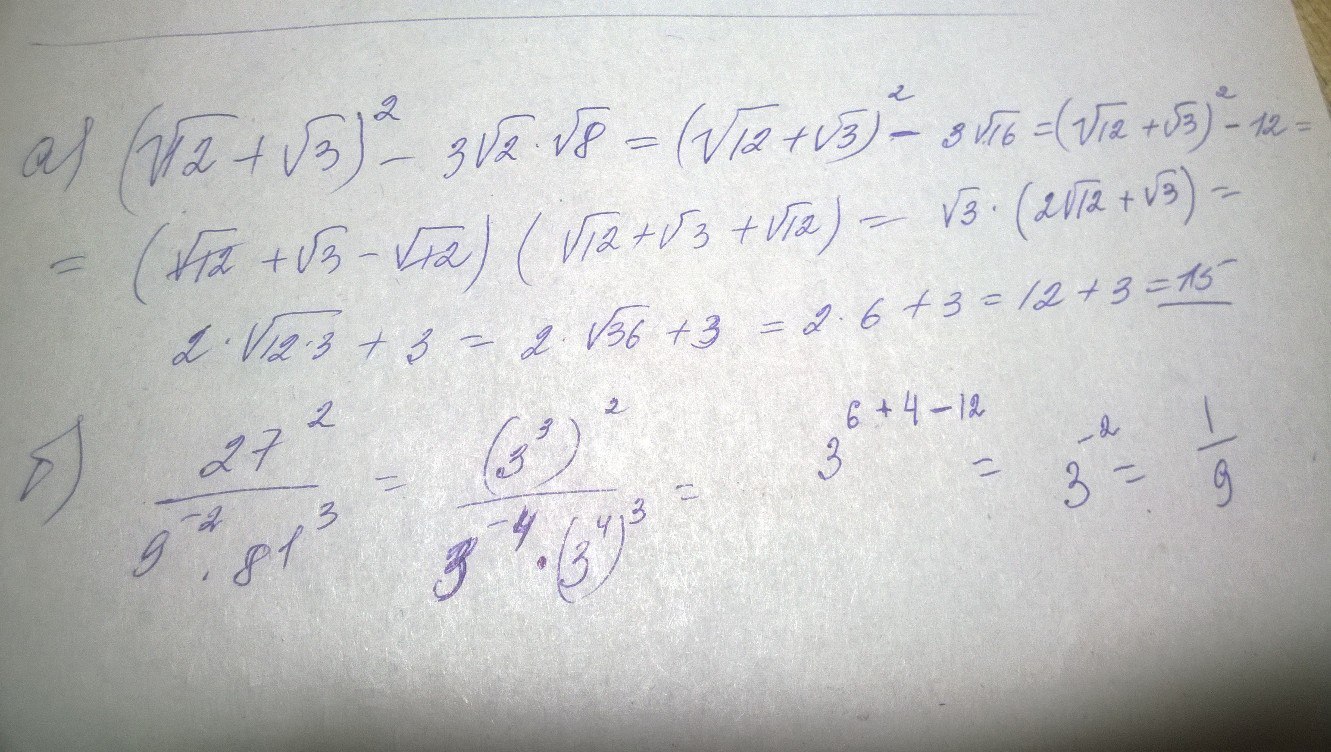 а) (√12 + √3)² - 3√2 · √8 = (√12 + √3)² - 3√16 = (√12 + √3)² - 12 =
= (√12 + √3 - √12) (√12 + √3 + √12) = √3 · (2√12 + √3) =
2 · √12·3 + 3 = 2 · √36 + 3 = 2 · 6 + 3 = 12 + 3 = 15
б) 27² / 9⁻² · 81³ = (3³)² / 3⁻⁴ · (3⁴)³ = 3⁶⁺⁴⁻¹² = 3⁻² = 1/9